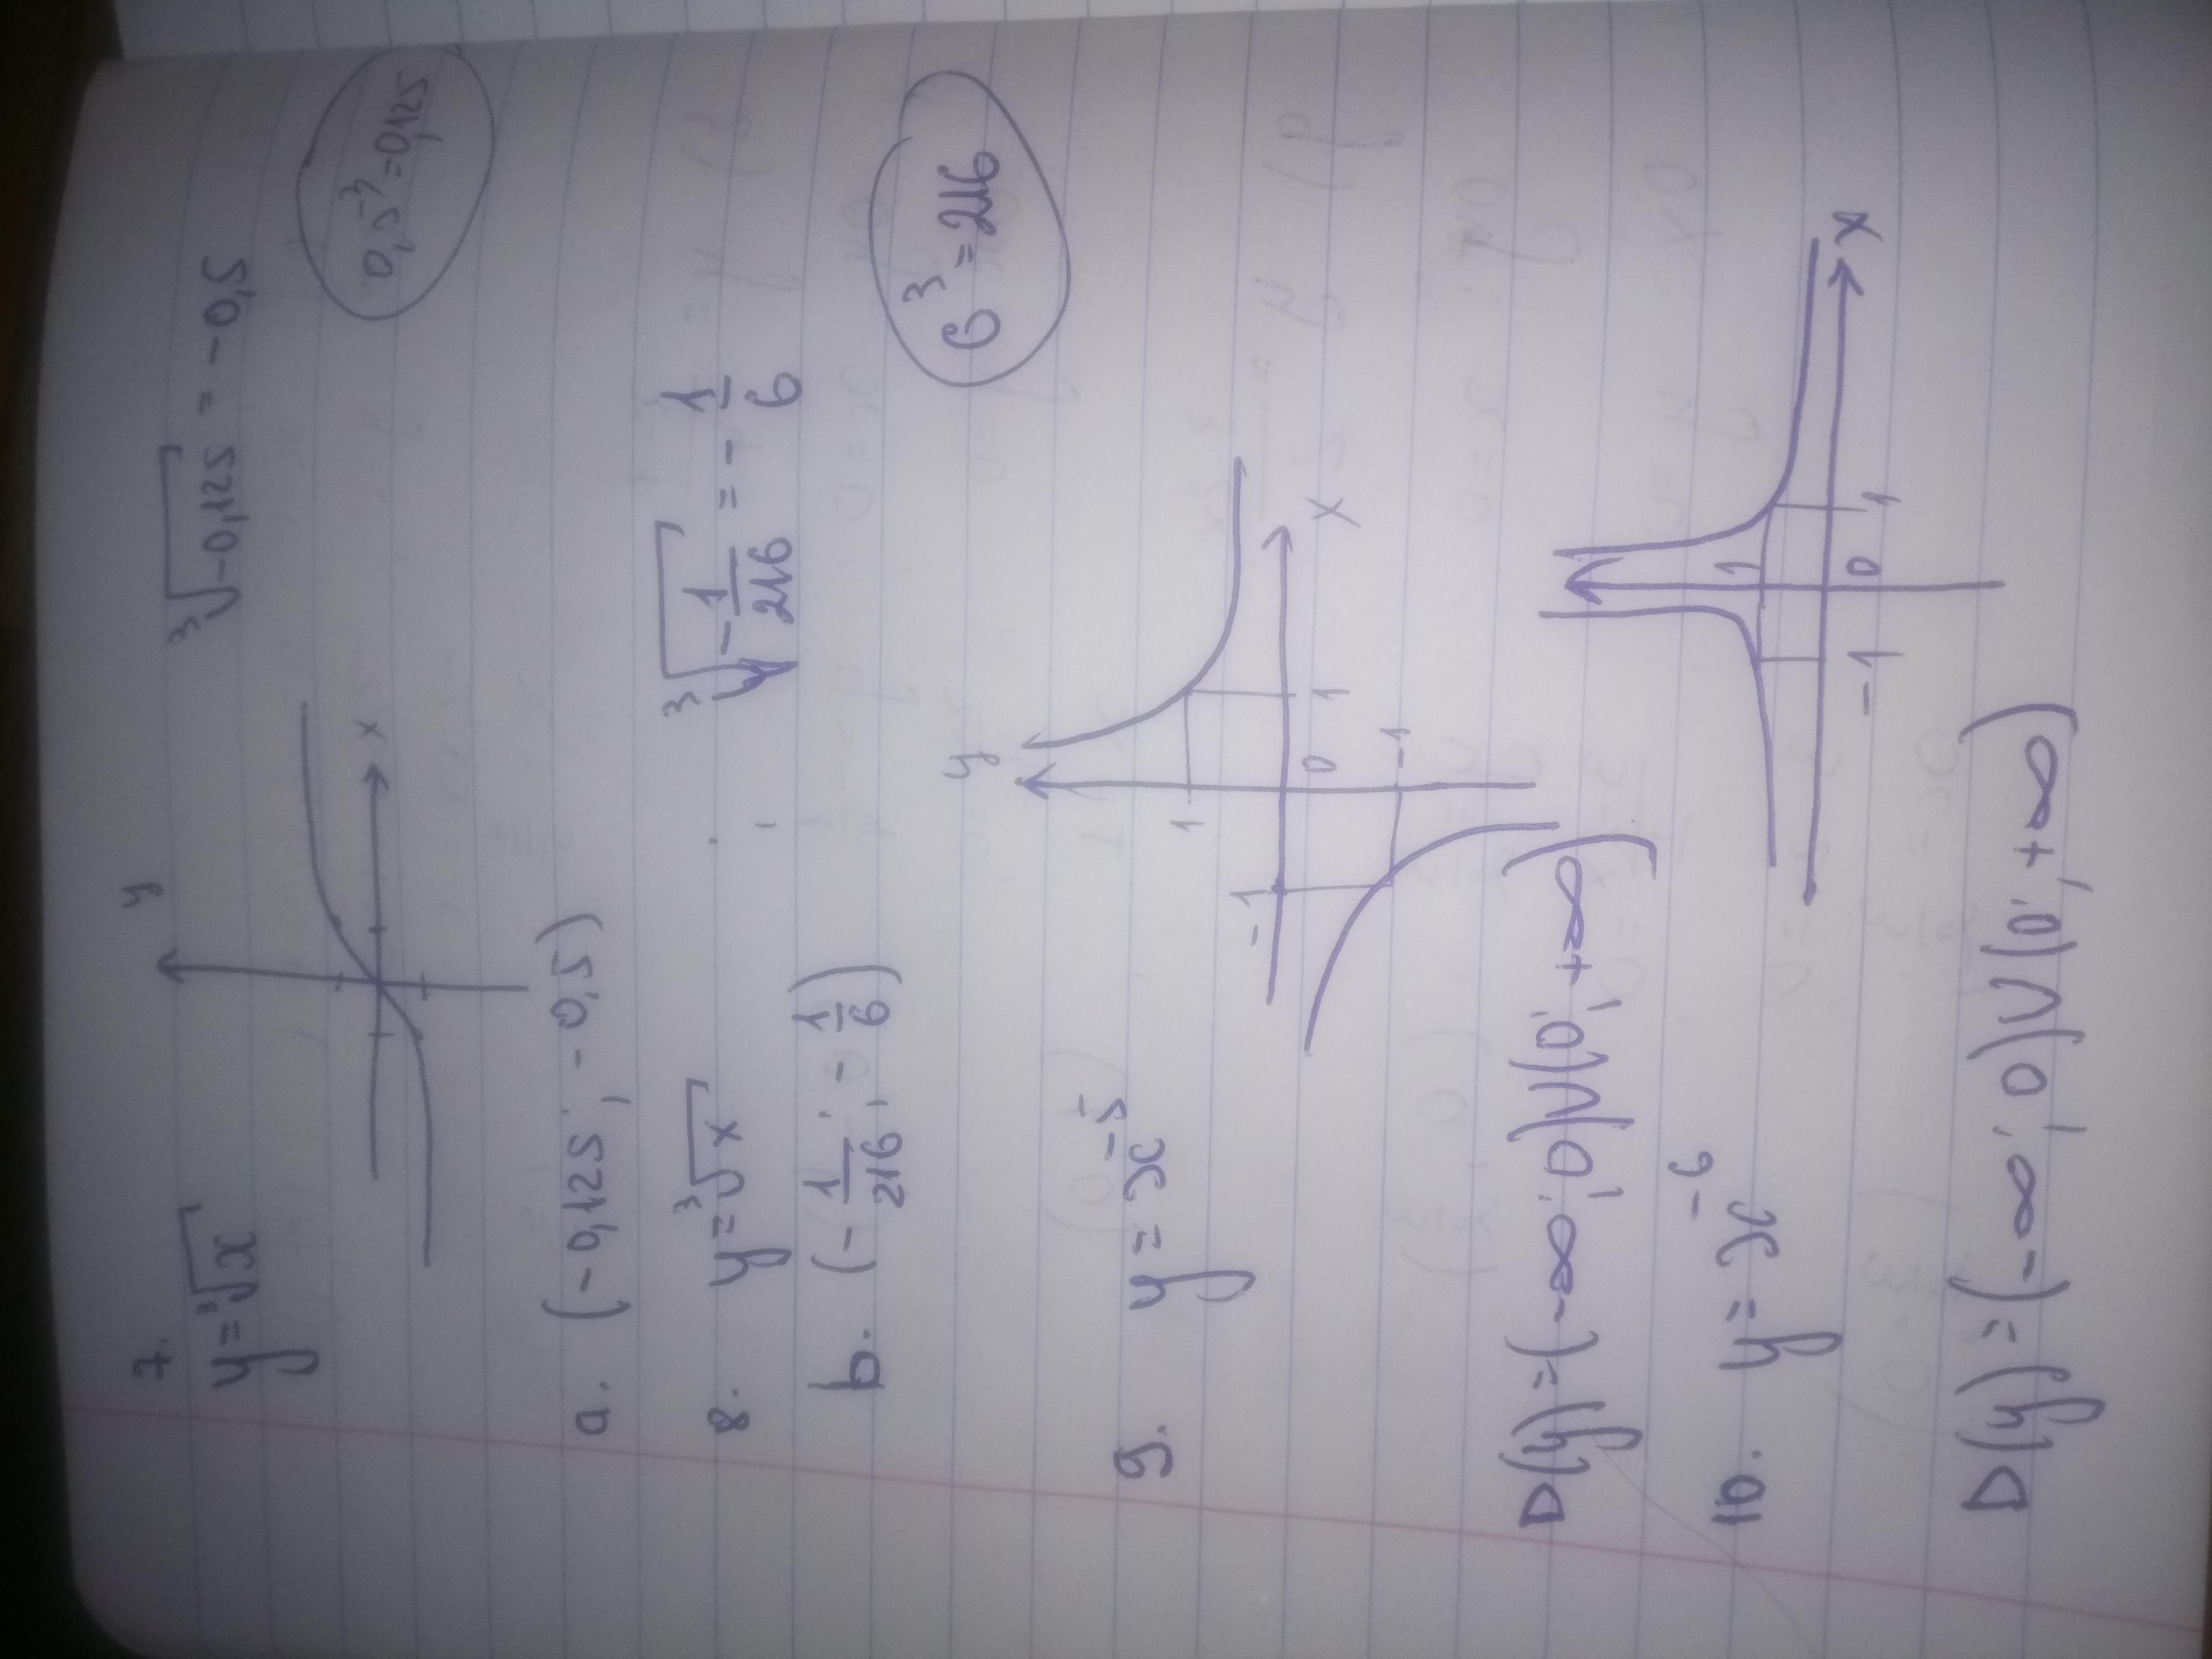 7.
y = ∛x
y
x
∛-0,125 = -0,5
0,5³ = 0,125
a. (-0,125; -0,5)
8. y = ∛x
∛-1/216 = -1/6
b. (-1/216; -1/6)
6³ = 216
9. y = x⁻⁵
y
x
1
1
0
-1
-1
D(y) = (-∞; 0) U (0; +∞)
10. y = x⁻⁶
x
1
1
0
-1
D(y) = (-∞; 0) U (0; +∞)